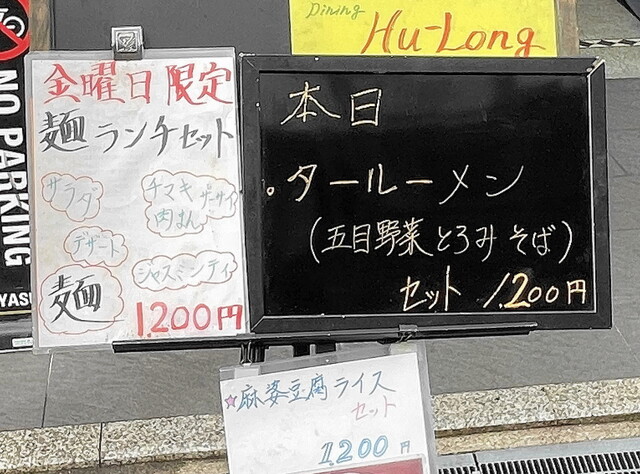 Dining
Hu-Long
NO PARKING
金曜日限定
麺ランチセット
サラダ
チマキ
肉まん
ザーサイ
デザート
麺
ジャスミンティ
1.200円
本日
。タールーメン
(五目野菜とろみそば)
セット 1.200円
☆麻婆豆腐ライス
セット
1.200円